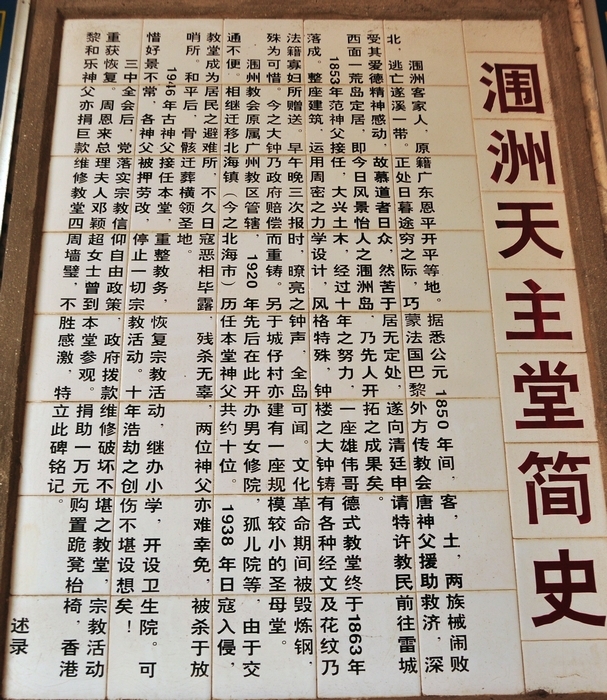 涠洲天主堂简史
涠洲客家人，原籍广东恩平开平等地。据悉公元 1850 年间，客，土，两族械闹败
北，逃亡遂溪一带。正处日暮途穷之际，巧蒙法国巴黎外方传教会唐神父援助救济，深
受其爱德精神感动，故慕道者日众，然苦于居无定处，遂向清廷申请特许教民前往雷城
西面一荒岛定居，即今日风景怡人之涠洲岛，乃先人开拓之成果矣。
1853年范神父接任，大兴土木，经过十年之努力，一座雄伟哥德式教堂终于1863年
落成。整座建筑，运用周密之力学设计，风格特殊，钟楼之大钟铸有各种经文及花纹乃
法籍寡妇所赠送。早午晚三次报时，暸亮之钟声，全岛可闻。文化革命期间被毁炼钢，
殊为可惜。今之大钟乃政府赔偿而重铸。另于城仔村亦建有一座规模较小的圣母堂。
涠州教会原属广州教区管辖，1920 年先后在此开办男女修院，孤儿院等，由于交
通不便。相继迁移北海镇（今之北海市）历任本堂神父共约十位。1938 年日寇入侵，
教堂成为居民之避难所，不久日寇恶相毕露，残杀无辜，两位神父亦难幸免，被杀于放
哨所。和平后，骨骸迁葬横领圣地。
1946年古神父接任本堂，重整教务，恢复宗教活动，继办小学，开设卫生院。可
惜好景不常，各神父被押劳改，停止一切宗教活动。十年浩劫之创伤不堪设想矣！
三中全会后，党落实宗教信仰自由政策，政府拨款维修破坏不堪之教堂，宗教活动
重获恢复。周恩来总理夫人邓颖超女士曾到本堂参观。捐助一万元购置跪凳枱椅，香港
黎和乐神父亦捐巨款维修教堂四周墙壁，不胜感激，特立此碑铭记。
述录